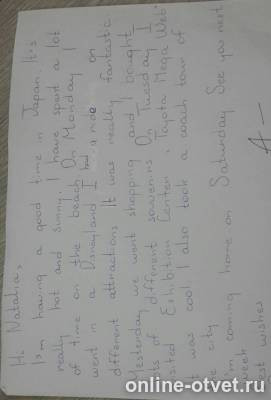 Hi Natalia,
I'm having a good time in Japan It's
really hot and sunny. I have spent a lot
of time on the beach On Monday I
went in a Disneyland I had a ride on
different attractions It was really fantastic
Yesterday we went shopping and I bought
lots of different souvenirs On Tuesday I
visited Exhibition Center "Toyota Mega Web"
It was cool I also took a coach town of
the city
I'm coming home on Saturday See you next
week
Best wishes
A-
online-otvet.ru